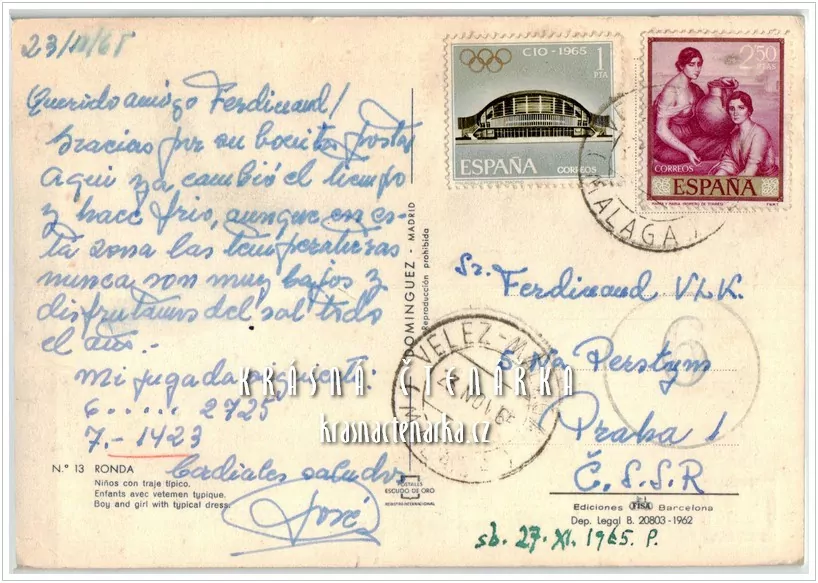 23/11/65
Querido amigo Ferdinand/
Gracias por su bonita postal
Aqui ya cambió el tiempo
y hace frio, aunque en es-
ta zona las temperaturas
nunca son muy bajas y
disfrutamos del sol todo
el año.-
Mi jugada siguiente:
6 ...... 2725
7.- 1423
Cordiales saludos
José
N.º 13 RONDA
Niños con traje típico.
Enfants avec vetemen typique.
Boy and girl with typical dress.
DOMINGUEZ - MADRID
Reproducción prohibida
POSTALES
ESCUDO DE ORO
CIO-1965
1
PTA
ESPAÑA
CORREOS
2'50
PTAS
CORREOS
ESPAÑA
MALAGA
VELEZ-MALAGA
NOV.
Sr. Ferdinand VLK.
5 Na Perstyn
Praha 1
Č.S.S.R
6
Ediciones FISA Barcelona
Dep. Legal B. 20803-1962
sb. 27. XI. 1965. P.
KRÁSNÁ ČTENÁŘKA
krasnactenarka.cz